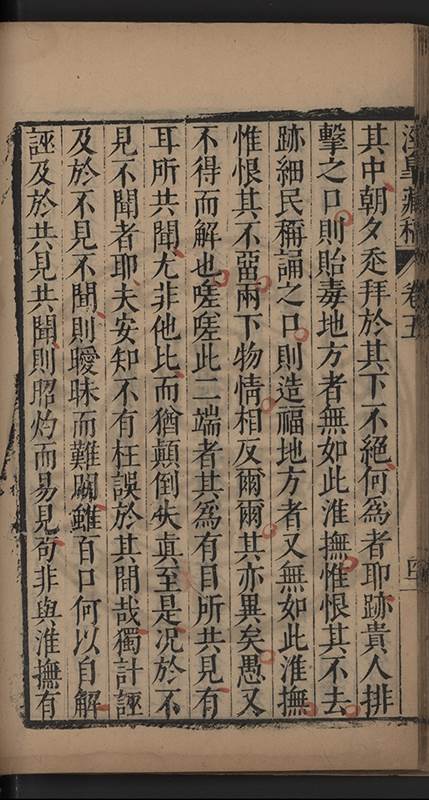 涇臯藏稿
卷五
四二
其中朝夕忝拜於其下不絕何為者耶跡貴人排
擊之口則貽毒地方者無如此淮撫惟恨其不去
跡細民稱誦之口則造福地方者又無如此淮撫
惟恨其不留兩下物情相反爾爾其亦異矣愚又
不得而解也嗟嗟此二端者其為有目所共見有
耳所共聞尤非他比而猶顛倒失真至是况於不
見不聞者耶夫安知不有枉誤於其間哉獨計誣
及於不見不聞則曖昧而難闢雖百口何以自解
誣及於共見共聞則昭灼而易見苟非與淮撫有